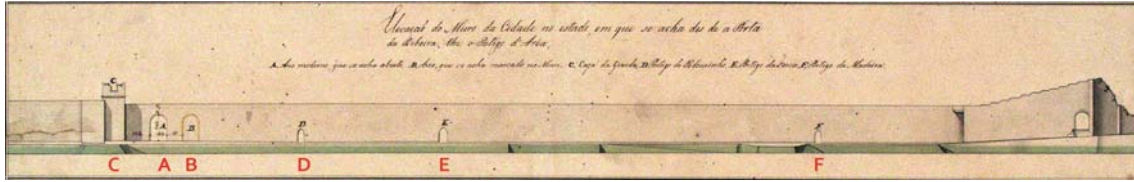 Elevaçaõ do Muro da Cidade no estado, em que se acha des de a Porta
da Ribeira, the o Postigo d'Area,
A. Arco moderno, que se acha aberto. B. Arco, que se acha marcado no Muro. C. Caza da Guarda, D. Postigo do E. Postigo da F. Postigo da Madeira.
C
A
B
D
E
F
C
A
B
D
E
F